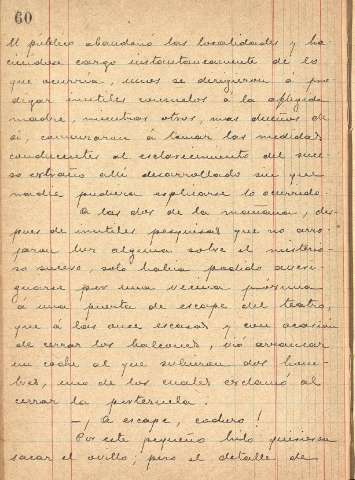 60
El publico abandonó las localidades y ha-
ciendose cargo instantaneamente de lo
que ocurria, unos se dirigieron a pro-
digar inutiles consuelos á la afligida
madre, mientras otros, mas dueños de
si, comenzaron á tomar las medidas
conducentes al esclarecimiento del suce-
so extraño alli desarrollado sin que
nadie pudiera explicarse lo ocurrido.
A las dos de la mañana, des-
pues de inutiles pesquisas que no arro-
jaron luz alguna sobre el misterio-
so suceso, solo habia podido averi-
guarse por una vecina proxima
á una puerta de escape del teatro,
que á las once escasas y con ocasion
de cerrar los balcones, vió arrancar
un coche al que subieron dos hom-
bres, uno de los cuales exclamó al
cerrar la portezuela.
—¡A escape, cochero!
Por este pequeño hilo quisieron
sacar el ovillo; pero el detalle de